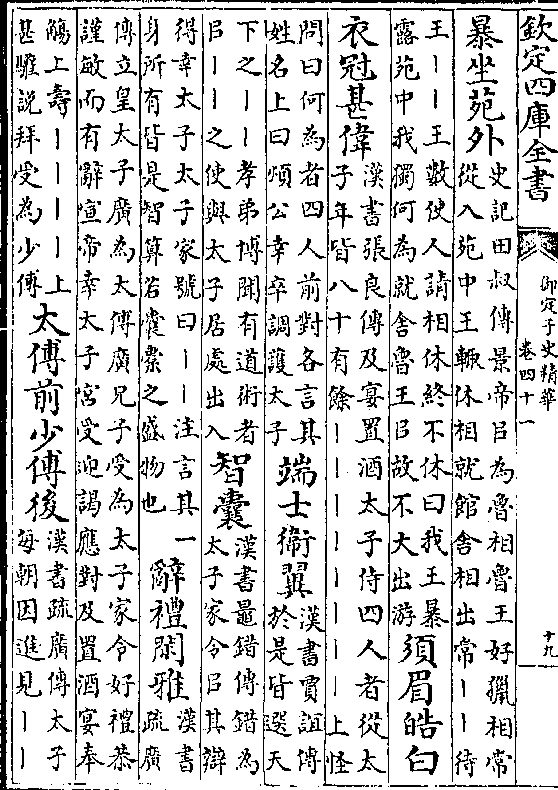 欽定四庫全書
御定子史精華
卷四十一
十九
暴坐苑外
史記田叔傳景帝㠯為魯相魯王好獵相常
從入苑中王輙休相就館舍相出常丨丨待
王丨丨王數使人請相休終不休曰我王暴
露苑中我獨何為就舍魯王㠯故不大出游
須眉皓白
衣冠甚偉
漢書張良傳及宴置酒太子侍四人者從太
子年皆八十有餘丨丨丨丨丨丨丨丨上怪
問曰何為者四人前對各言其
姓名上曰煩公幸卒調護太子
端士衞翼
漢書賈誼傳
於是皆選天
下之丨丨孝弟博聞有道術者
㠯丨丨之使與太子居處出入
智囊
漢書鼂錯傳錯為
太子家令㠯其辯
得幸太子太子家號曰丨丨注言其一
身所有皆是智算若囊橐之盛物也
辭禮閑雅
漢書
疏廣
傳立皇太子廣為太傅廣兄子受為太子家令好禮恭
謹敏而有辭宣帝幸太子宮受迎謁應對及置酒宴奉
觴上壽丨丨丨丨上
甚驩説拜受為少傅
太傅前少傅後
漢書疏廣傳太子
每朝因進見丨丨